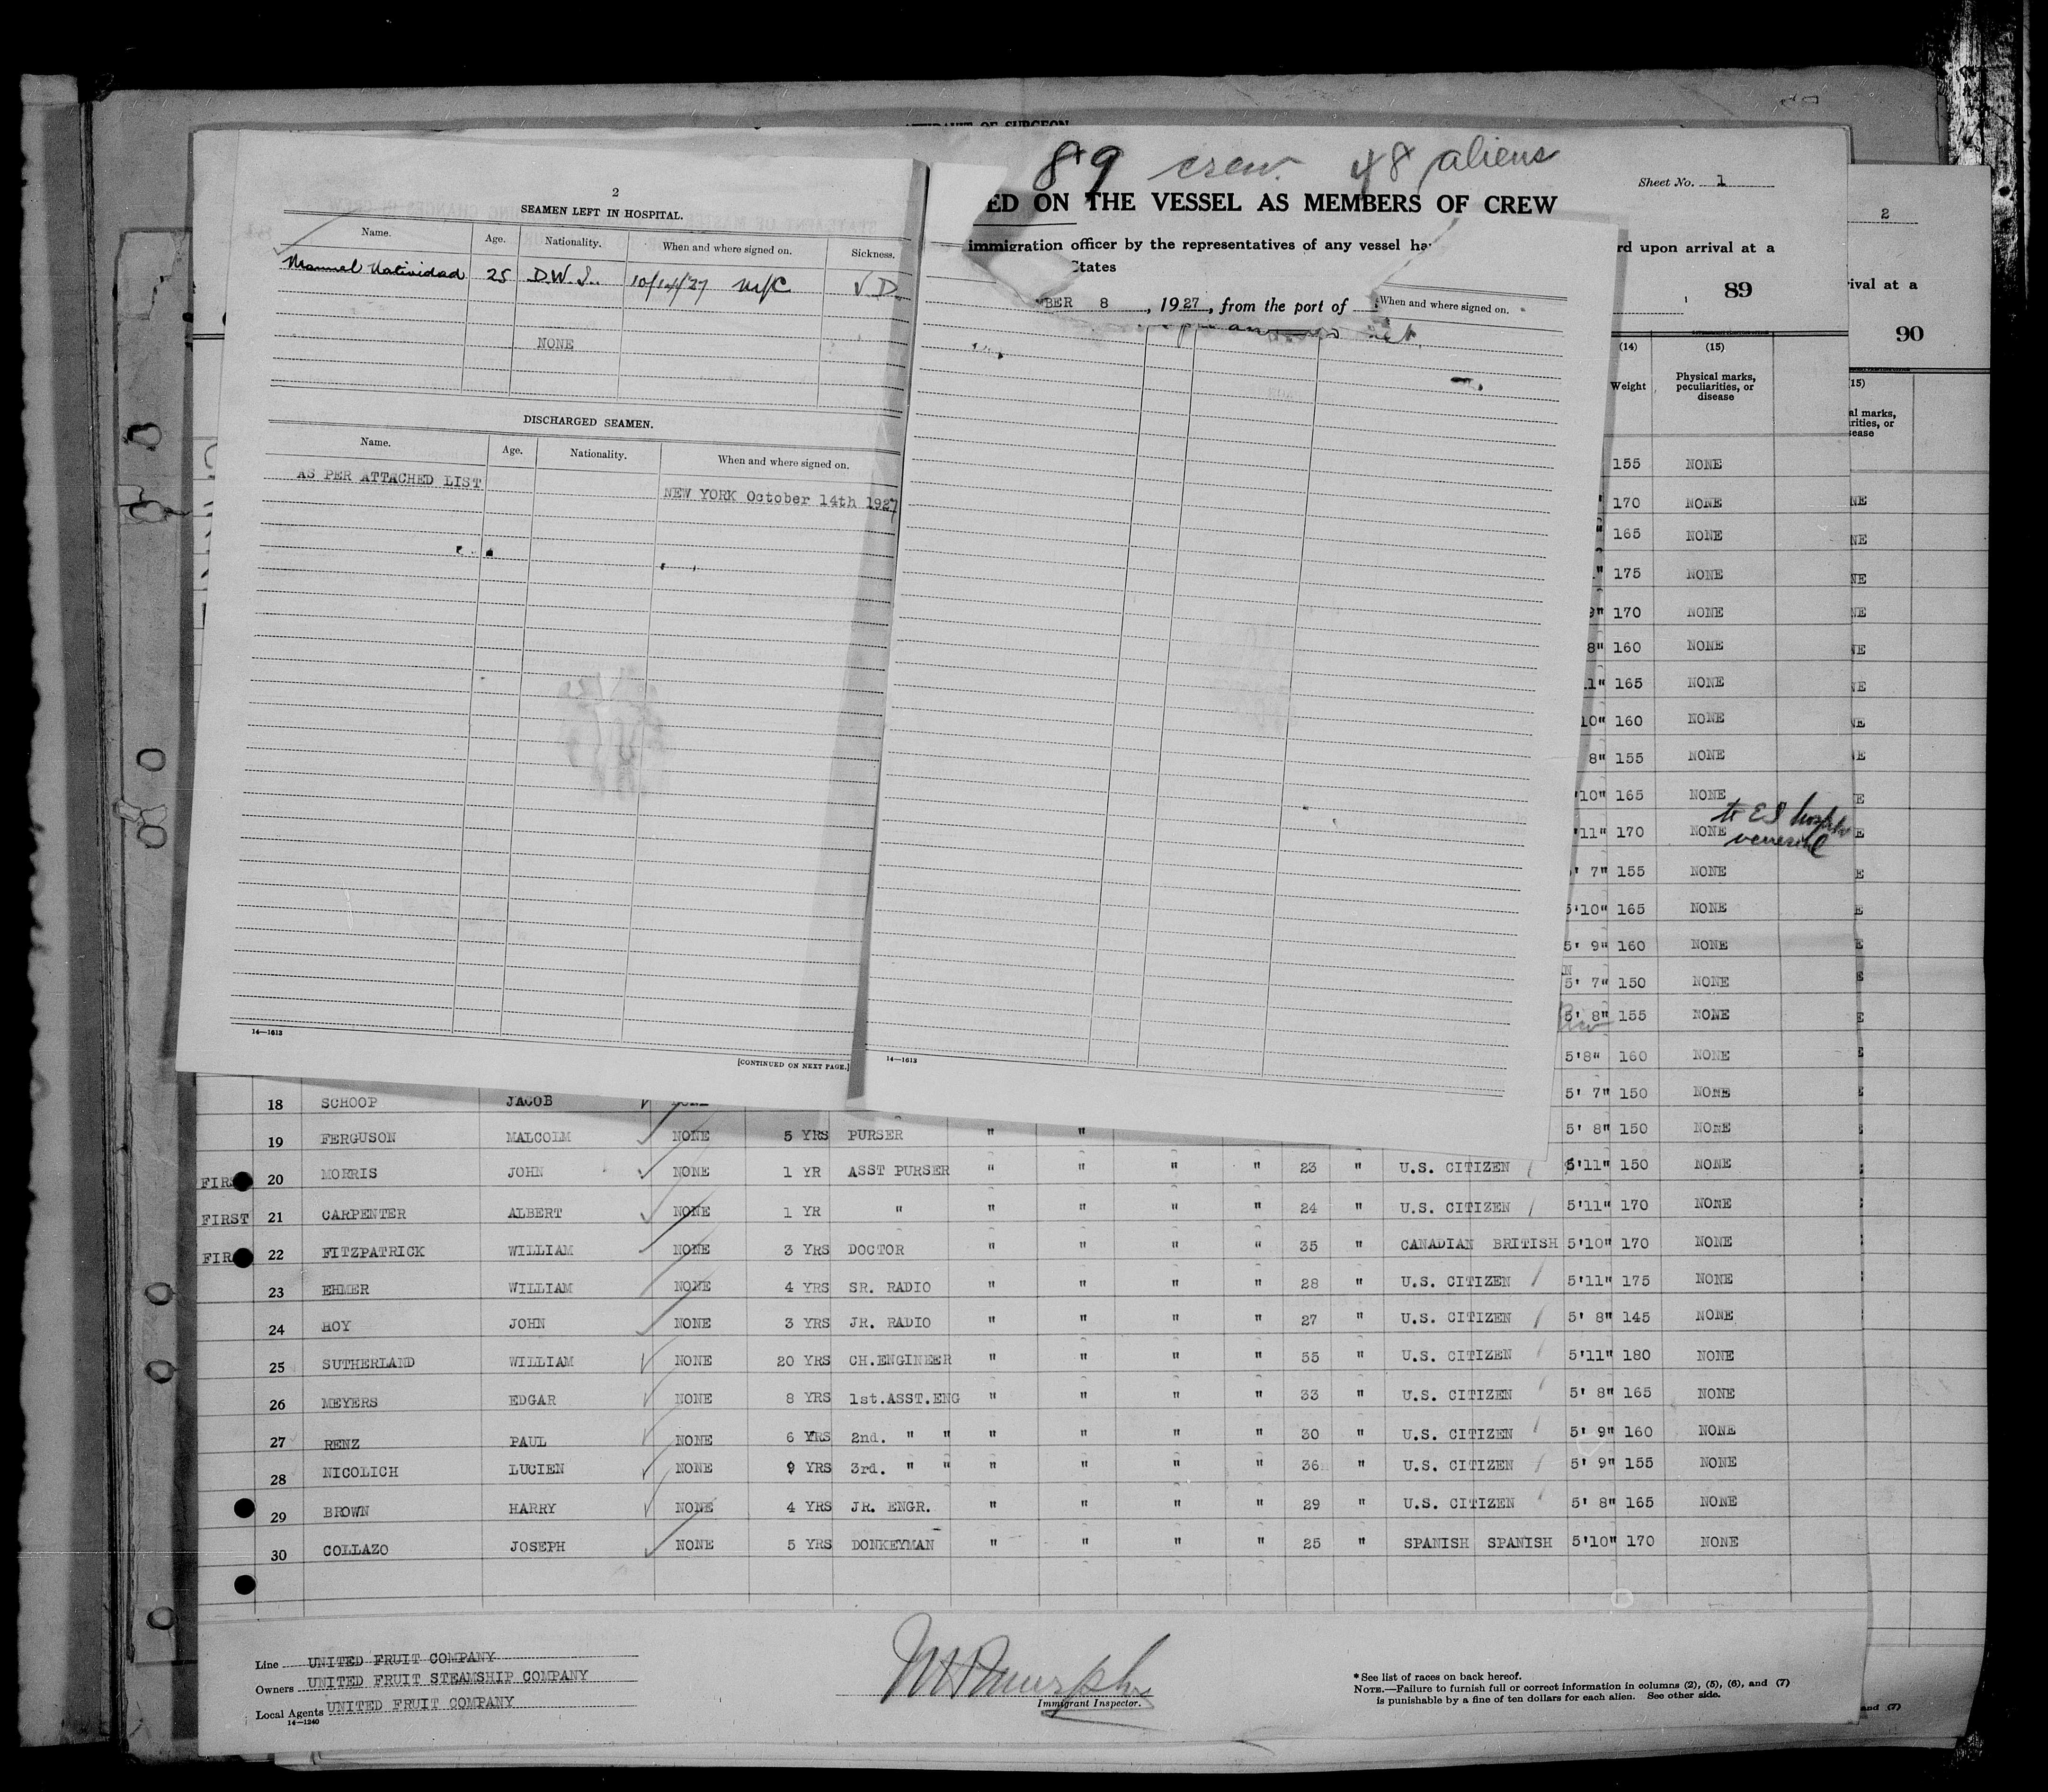 AFFIDAVIT OF SURGEON
89 crew. 48 aliens
Sheet No. 1
ED ON THE VESSEL AS MEMBERS OF CREW
immigration officer by the representatives of any vessel ha
rd upon arrival at a
States
89
BER 8, 1927, from the port of
2
rival at a
90
2
SEAMEN LEFT IN HOSPITAL.
Name. Age. Nationality. When and where signed on. Sickness.
Manuel Natividad 25 D.W.I. 10/14/27 N/C V D.
NONE
DISCHARGED SEAMEN.
Name. Age. Nationality. When and where signed on.
AS PER ATTACHED LIST
NEW YORK October 14th 1927
14—1613
[CONTINUED ON NEXT PAGE.]
When and where signed on.
14—1613
(14) (15)
Weight Physical marks, peculiarities, or disease
(15)
al marks,
rities, or
sease
155 NONE
170 NONE NE
165 NONE NE
" 175 NONE NE
9" 170 NONE NE
8" 160 NONE NE
11" 165 NONE NE
10" 160 NONE NE
8" 155 NONE E
'10" 165 NONE E
to E I hospital
'11" 170 NONE E
venereal
' 7" 155 NONE E
5'10" 165 NONE E
5' 9" 160 NONE E
5' 7" 150 NONE E
5' 8" 155 NONE E
5'8" 160 NONE E
18 SCHOOP JACOB NONE 5' 7" 150 NONE
19 FERGUSON MALCOLM NONE 5 YRS PURSER " " 5' 8" 150 NONE
FIRST 20 MORRIS JOHN NONE 1 YR ASST PURSER " " " " 23 " U.S. CITIZEN 5'11" 150 NONE
FIRST 21 CARPENTER ALBERT NONE 1 YR " " " " " 24 " U.S. CITIZEN 5'11" 170 NONE
FIR 22 FITZPATRICK WILLIAM NONE 3 YRS DOCTOR " " " " 35 " CANADIAN BRITISH 5'10" 170 NONE
23 EHMER WILLIAM NONE 4 YRS SR. RADIO " " " " 28 " U.S. CITIZEN 5'11" 175 NONE
24 HOY JOHN NONE 3 YRS JR. RADIO " " " " 27 " U.S. CITIZEN 5' 8" 145 NONE
25 SUTHERLAND WILLIAM NONE 20 YRS CH.ENGINEER " " " " 55 " U.S. CITIZEN 5'11" 180 NONE
26 MEYERS EDGAR NONE 8 YRS 1st.ASST.ENG " " " " 33 " U.S. CITIZEN 5' 8" 165 NONE
27 RENZ PAUL NONE 6 YRS 2nd. " " " " " " 30 " U.S. CITIZEN 5' 9" 160 NONE
28 NICOLICH LUCIEN NONE 9 YRS 3rd. " " " " " " 36 " U.S. CITIZEN 5' 9" 155 NONE
29 BROWN HARRY NONE 4 YRS JR. ENGR. " " " " 29 " U.S. CITIZEN 5' 8" 165 NONE
30 COLLAZO JOSEPH NONE 5 YRS DONKEYMAN " " " " 25 " SPANISH SPANISH 5'10" 170 NONE
Line UNITED FRUIT COMPANY
Owners UNITED FRUIT STEAMSHIP COMPANY
Local Agents UNITED FRUIT COMPANY
14—1240
Immigrant Inspector.
* See list of races on back hereof.
NOTE.—Failure to furnish full or correct information in columns (2), (5), (6), and (7)
is punishable by a fine of ten dollars for each alien. See other side.
and (7)